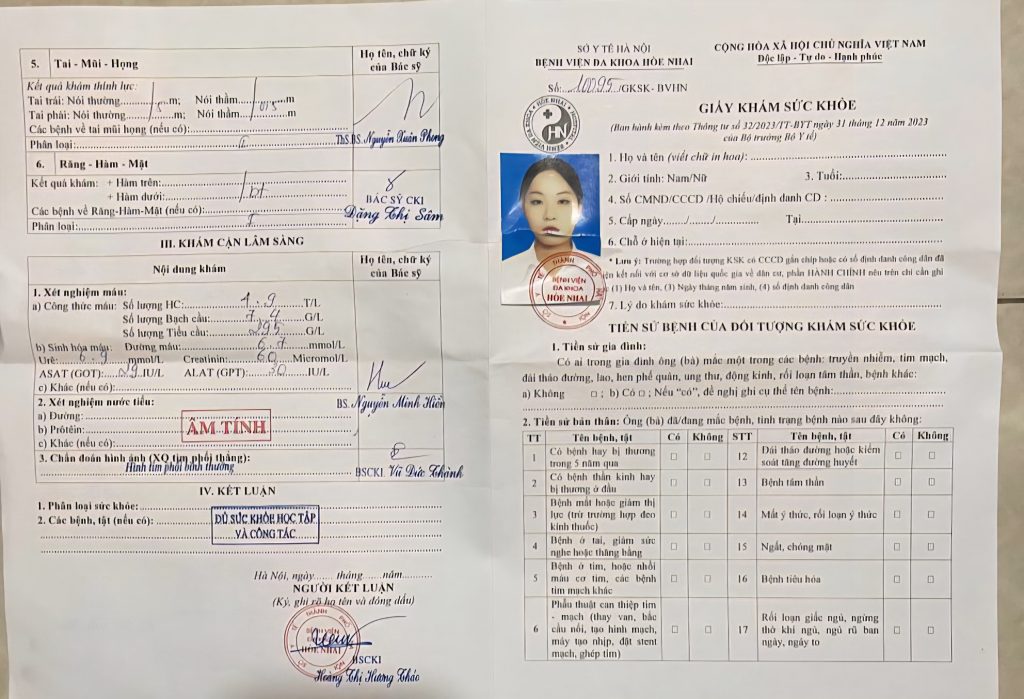 5. Tai - Mũi - Họng
Họ tên, chữ ký của Bác sỹ
Kết quả khám thính lực:
Tai trái: Nói thường 5 m; Nói thầm 0,5 m
Tai phải: Nói thường m; Nói thầm m
Các bệnh về tai mũi họng (nếu có):
Phân loại:
ThS.BS. Nguyễn Xuân Phong
6. Răng - Hàm - Mặt
Kết quả khám: + Hàm trên:
+ Hàm dưới: bt
Các bệnh về Răng-Hàm-Mặt (nếu có):
Phân loại:
BÁC SỸ CKI
Đặng Thị Sâm
III. KHÁM CẬN LÂM SÀNG
Nội dung khám
Họ tên, chữ ký của Bác sỹ
1. Xét nghiệm máu:
a) Công thức máu: Số lượng HC: 4.9 T/L
Số lượng Bạch cầu: 7.4 G/L
Số lượng Tiểu cầu: 295 G/L
b) Sinh hóa máu: Đường máu: 6.7 mmol/L
Urê: 6.9 mmol/L Creatinin: 60 Micromol/L
ASAT (GOT): 29 IU/L ALAT (GPT): 30 IU/L
c) Khác (nếu có):
BS. Nguyễn Minh Hiền
2. Xét nghiệm nước tiểu:
a) Đường:
b) Prôtêin:
ÂM TÍNH
c) Khác (nếu có):
3. Chẩn đoán hình ảnh (XQ tim phổi thẳng):
Hình tim phổi bình thường
BSCKI. Vũ Đức Thành
IV. KẾT LUẬN
1. Phân loại sức khỏe:
2. Các bệnh, tật (nếu có):
ĐỦ SỨC KHỎE HỌC TẬP
VÀ CÔNG TÁC
Hà Nội, ngày....... tháng......năm..........
NGƯỜI KẾT LUẬN
(Ký, ghi rõ họ tên và đóng dấu)
BỆNH VIỆN
ĐA KHOA
HÒE NHAI
BSCKI
Hoàng Thị Hương Thảo
SỞ Y TẾ HÀ NỘI
BỆNH VIỆN ĐA KHOA HÒE NHAI
Số: 10095/GKSK- BVHN
CỘNG HÒA XÃ HỘI CHỦ NGHĨA VIỆT NAM
Độc lập - Tự do - Hạnh phúc
HN
GIẤY KHÁM SỨC KHỎE
(Ban hành kèm theo Thông tư số 32/2023/TT-BYT ngày 31 tháng 12 năm 2023
của Bộ trưởng Bộ Y tế)
1. Họ và tên (viết chữ in hoa):
2. Giới tính: Nam/Nữ 3. Tuổi:
4. Số CMND/CCCD /Hộ chiếu/định danh CD :
5. Cấp ngày......../......./.......... Tại
6. Chỗ ở hiện tại:
* Lưu ý: Trường hợp đối tượng KSK có CCCD gắn chíp hoặc có số định danh công dân đã
kết nối với cơ sở dữ liệu quốc gia về dân cư, phần HÀNH CHÍNH nêu trên chỉ cần ghi
(1) Họ và tên, (3) Ngày tháng năm sinh, (4) số định danh công dân
7. Lý do khám sức khỏe:
THÀNH PHỐ
BỆNH VIỆN
ĐA KHOA
HÒE NHAI
TIỀN SỬ BỆNH CỦA ĐỐI TƯỢNG KHÁM SỨC KHỎE
1. Tiền sử gia đình:
Có ai trong gia đình ông (bà) mắc một trong các bệnh: truyền nhiễm, tim mạch,
đái tháo đường, lao, hen phế quản, ung thư, động kinh, rối loạn tâm thần, bệnh khác:
a) Không □ ; b) Có □ ; Nếu “có”, đề nghị ghi cụ thể tên bệnh:
2. Tiền sử bản thân: Ông (bà) đã/đang mắc bệnh, tình trạng bệnh nào sau đây không:
TT Tên bệnh, tật Có Không STT Tên bệnh, tật Có Không
1 Có bệnh hay bị thương trong 5 năm qua □ □ 12 Đái tháo đường hoặc kiểm soát tăng đường huyết □ □
2 Có bệnh thần kinh hay bị thương ở đầu □ □ 13 Bệnh tâm thần □ □
3 Bệnh mắt hoặc giảm thị lực (trừ trường hợp đeo kính thuốc) □ □ 14 Mất ý thức, rối loạn ý thức □ □
4 Bệnh ở tai, giảm sức nghe hoặc thăng bằng □ □ 15 Ngất, chóng mặt □ □
5 Bệnh ở tim, hoặc nhồi máu cơ tim, các bệnh tim mạch khác □ □ 16 Bệnh tiêu hóa □ □
6 Phẫu thuật can thiệp tim - mạch (thay van, bắc cầu nối, tạo hình mạch, máy tạo nhịp, đặt stent mạch, ghép tim) □ □ 17 Rối loạn giấc ngủ, ngừng thở khi ngủ, ngủ rũ ban ngày, ngáy to □ □